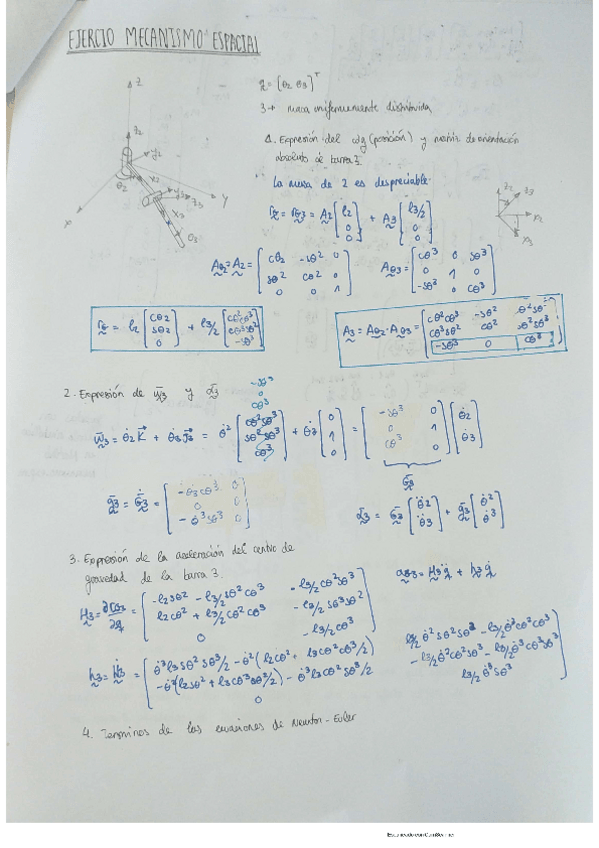 EJERCIO MECANISMO ESPACIAL
z
z₂
y₂
θ₂
x₂
y
x
θ₃
q = [θ₂ θ₃]ᵀ
3 → masa uniformemente distribuida
1. Expresión del cdg (posición) y matriz de orientación
absoluta de barra 3
La masa de 2 es despreciable.
r_G3 = A₂ [l₂ 0 0] + A₃ [l3/2 0 0]
A_θ2 = A₂ = [cθ₂ -sθ2 0; sθ2 cθ2 0; 0 0 1]
A_θ3 = [cθ3 0 sθ3; 0 1 0; -sθ3 0 cθ3]
= l₂ [cθ2 sθ2 0] + l3/2 [cθ2cθ3 cθ3sθ2 -sθ3]
A₃ = A_θ2 · A_θ3 = [cθ2cθ3 -sθ2 cθ2sθ3; cθ3sθ2 cθ2 sθ2sθ3; -sθ3 0 cθ3]
2. Expresión de ω̄₃ y ᾱ₃
-sθ3
0
cθ3
ω̄₃ = θ̇₂ K⃗ + θ̇₃ J⃗₃ = θ̇2 [cθ2sθ3 sθ2sθ3 cθ3] + θ̇3 [0 1 0] = [-sθ3 0; 0 1; cθ3 0] [θ̇2 θ̇3]
G̅₃
g̅₃ = G̅̇₃ = [-θ̇₃cθ3 0; 0 0; -θ̇3sθ3 0]
α̅₃ = G̅₃ [θ̈2 θ̈3] + g̅₃ [θ̇2 θ̇3]
3. Expresión de la aceleración del centro de
gravedad de la barra 3.
a_G3 = H₃q̈ + h₃q̇
H₃ = ∂r_G3/∂q = [-l₂sθ2 - l3/2 sθ2cθ3 -l3/2 cθ2sθ3; l2cθ2 + l3/2 cθ2cθ3 -l3/2 sθ3sθ2; 0 -l3/2 cθ3]
h₃ = Ḣ₃ = [θ̇3l3sθ2sθ3/2 - θ̇2(l2cθ2 + l3cθ2cθ3/2) l3/2 θ̇2sθ2sθ3 - l3/2 θ̇3cθ2cθ3; -θ̇2(l2sθ2 + l3cθ3sθ2/2) - θ̇3l3cθ2sθ3/2 -l3/2 θ̇2cθ2sθ3 - l3/2 θ̇3cθ3sθ2; 0 l3/2 θ̇3sθ3]
4. Terminos de las ecuaciones de Newton-Euler
Escaneado con CamScanner